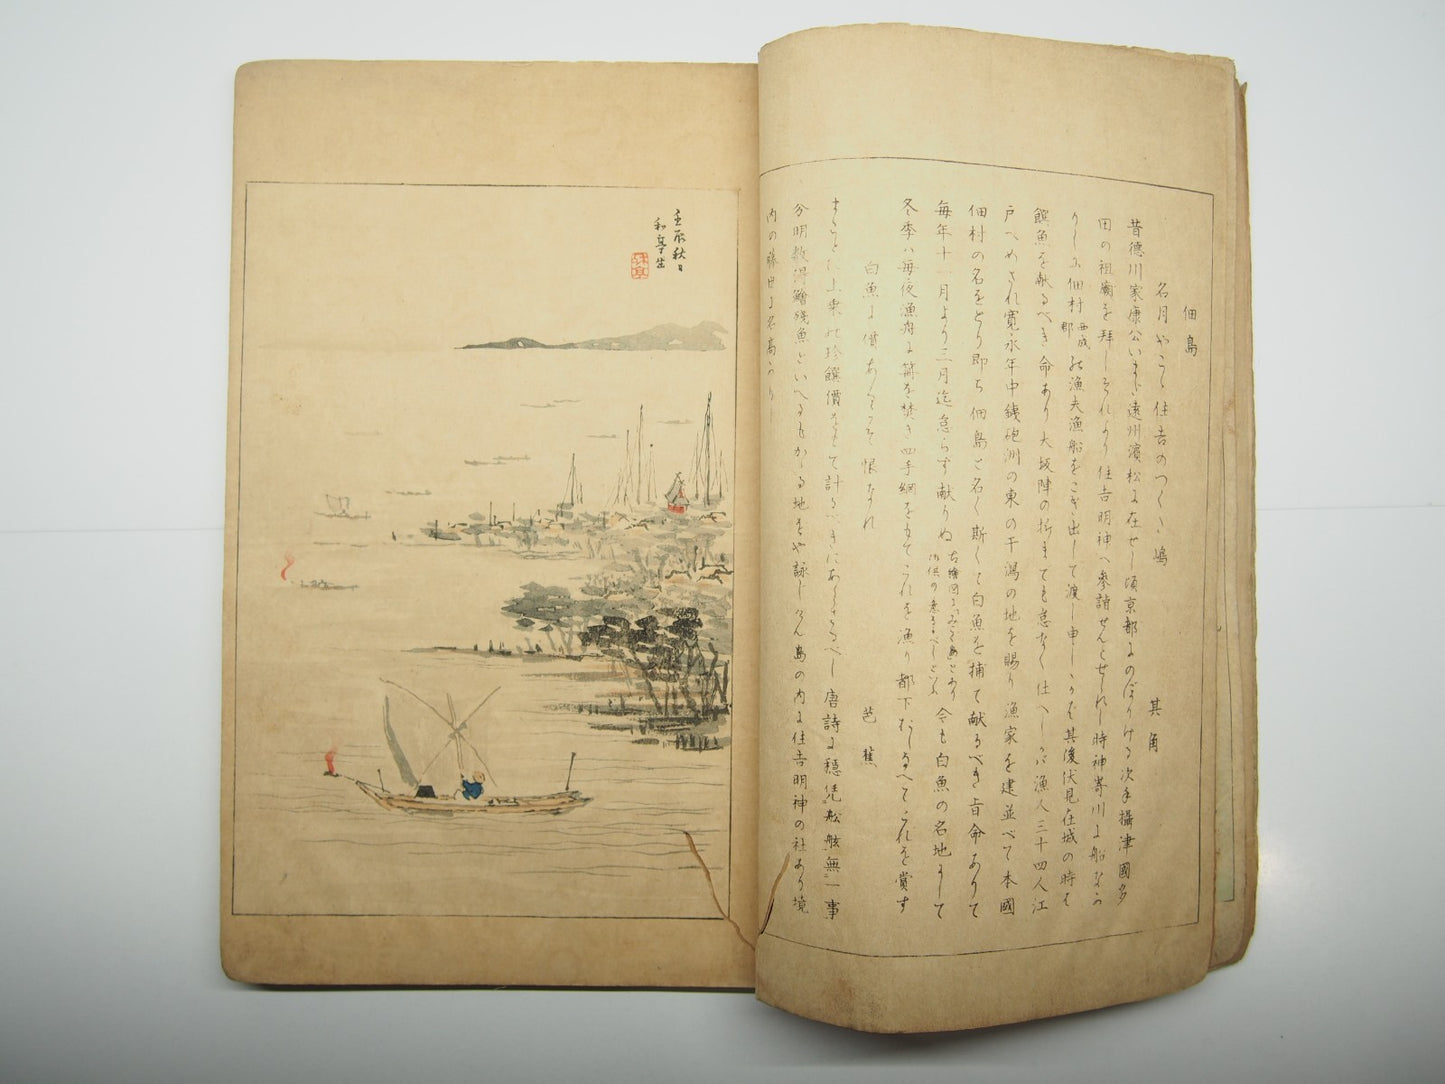 佃島
名月やこゝ住吉のつくだ嶋 其角
昔德川家康公いまだ遠州濱松に在せし頃京都にのぼりける次手攝津國多
田の祖廟を拜しそれより住吉明神へ參詣せんとせられし時神嵜川に船なか
りしに佃村西成郡の漁夫漁船をこぎ出して渡し申しゝかば其後伏見在城の時も
饌魚を献るべき命あり大坂陣の折までも怠なく仕へしかバ漁人三十四人江
戸へめされ寛永年中銕砲洲の東の干潟の地を賜り漁家を建並べて本國
佃村の名をとり即ち佃島と名く斯くて白魚を捕て献るべき旨命ありて
每年十一月より三月迄怠らず献りぬ 今も白魚の名地にして
冬季ハ每夜漁舟に篝を焚き四手網をもてこれを漁り都下むしるへてこれを賞す
白魚に價あるこそ恨なれ 芭蕉
分明数得鱠殘魚といへるもかゝる地をや詠しけん島の内に住吉明神の社あり境
内の藤は世に名高かりし
壬辰秋日
和亭生